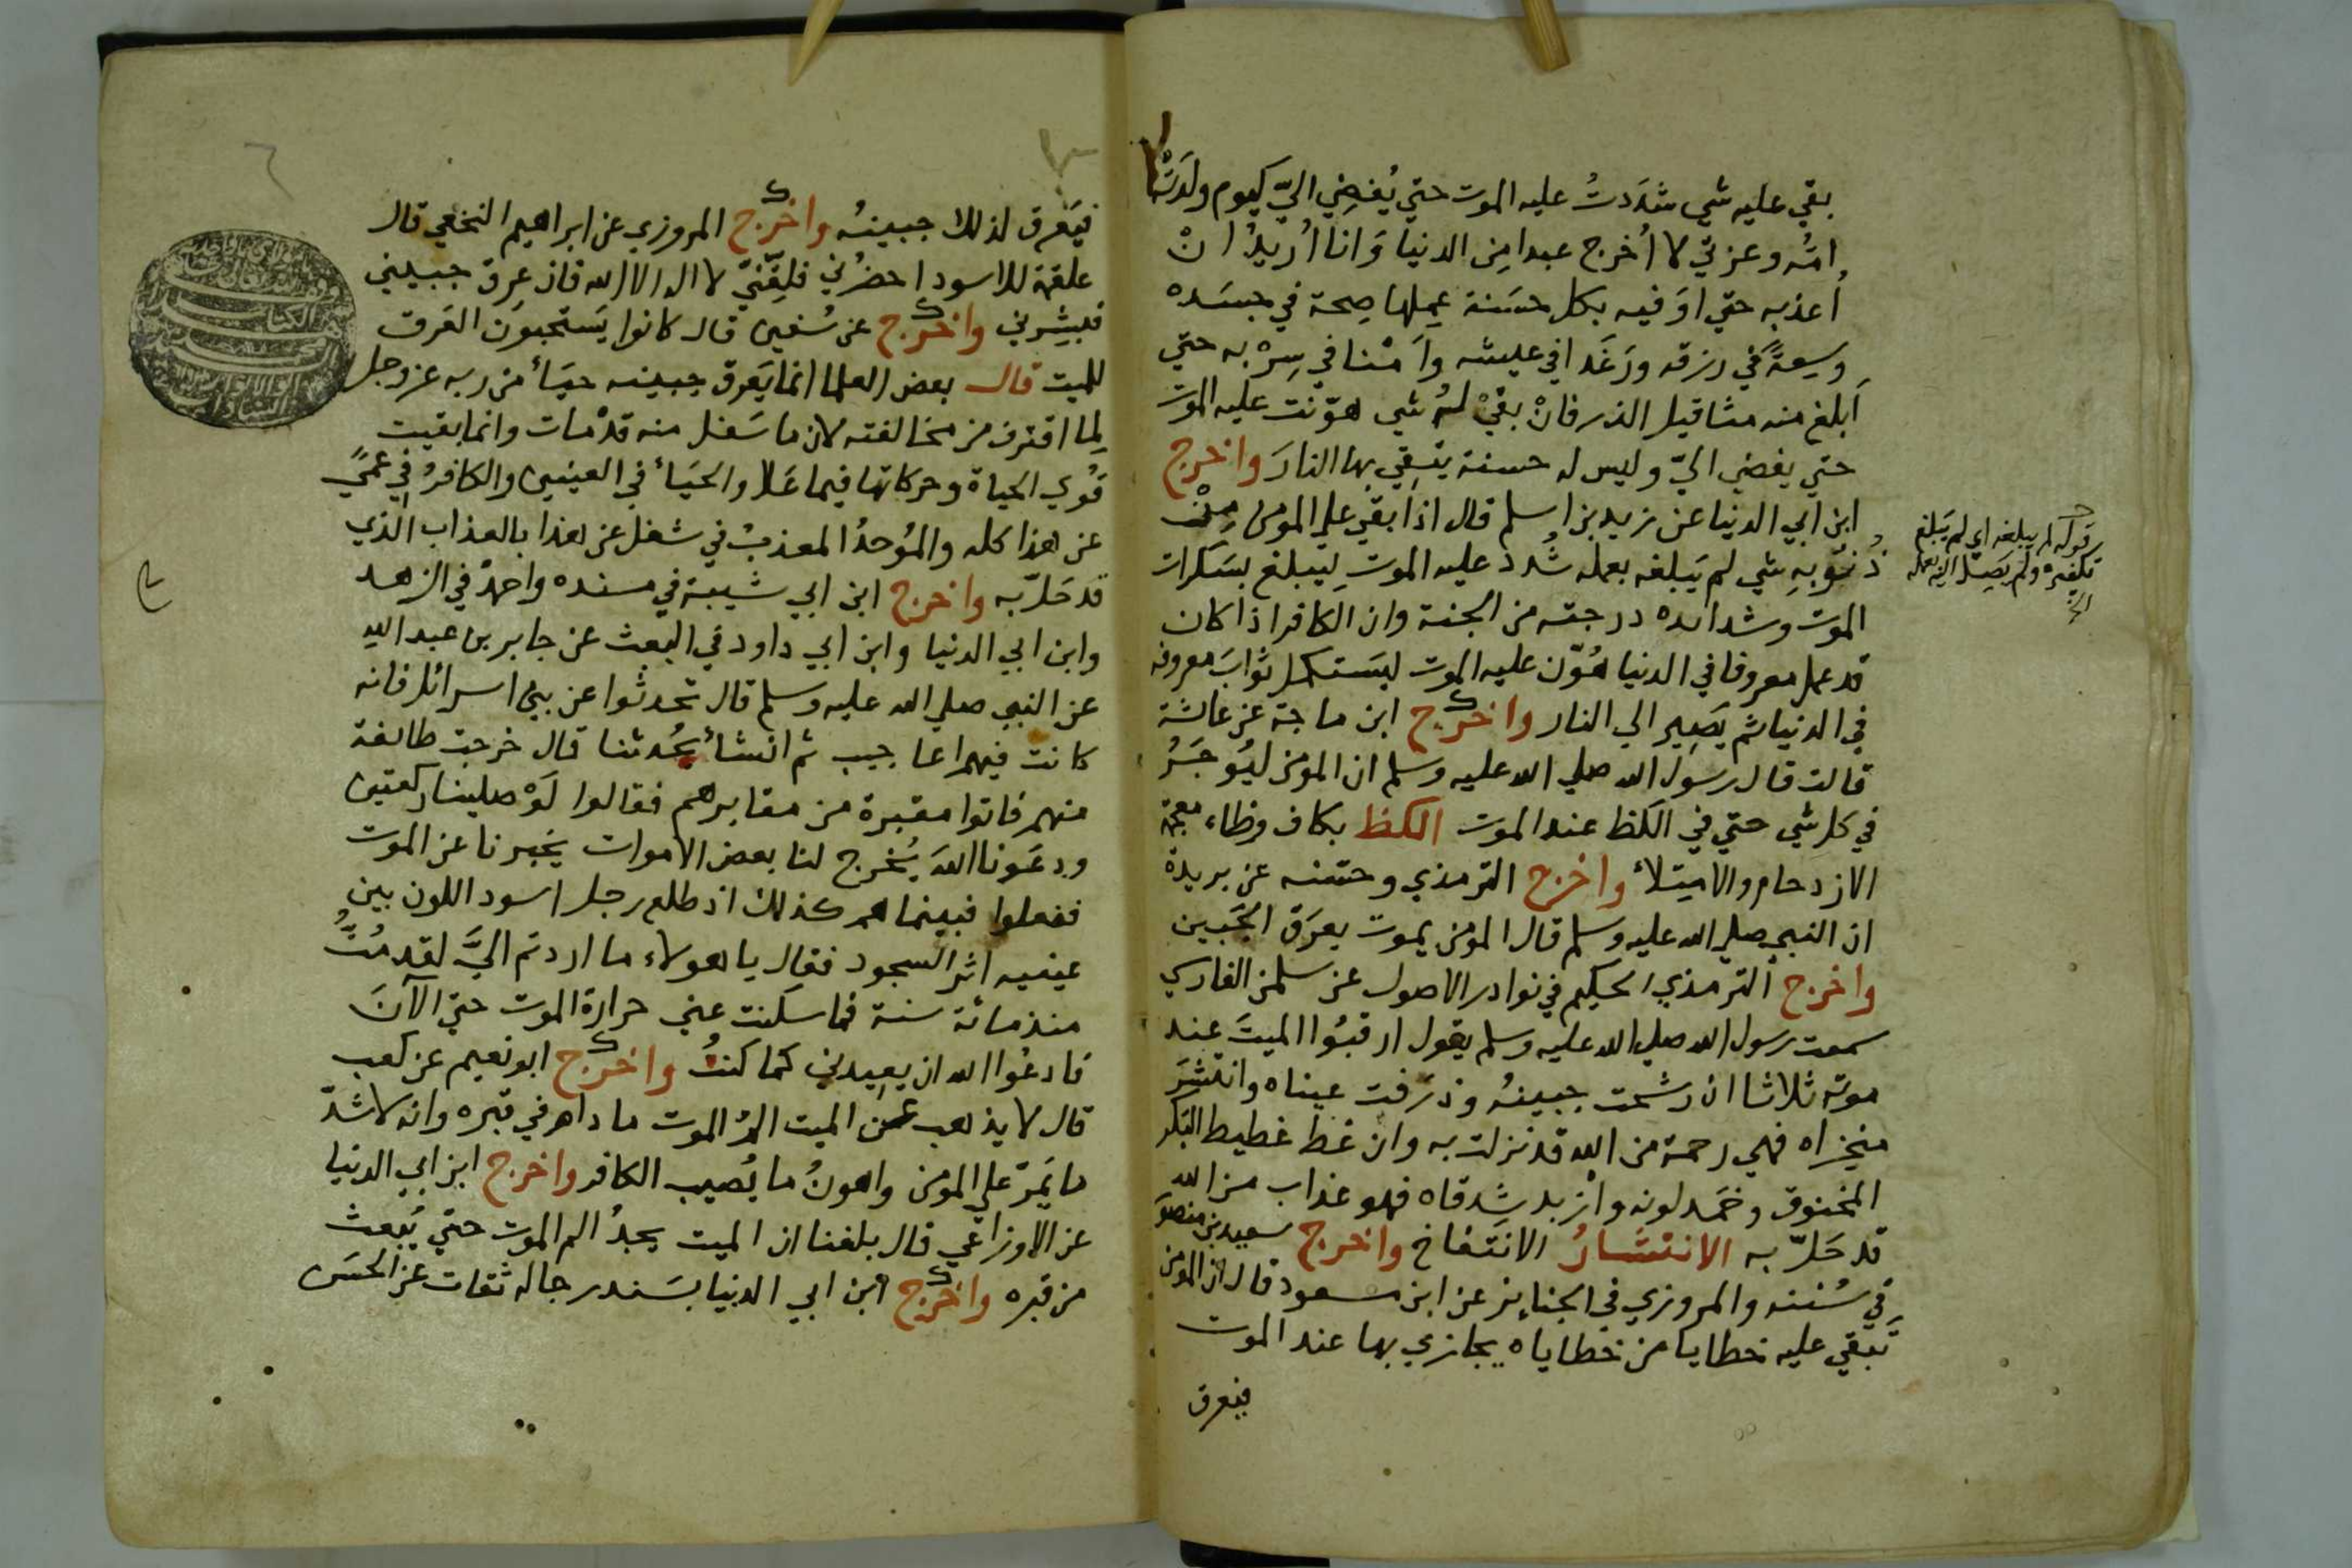 بقي عليه شي شدَدتُ عليه الموت حتي يُفضِي اليّ كيوم ولدَتْه
امُّه وعزتي لا اُخرج عبدا مِن الدنيا وَانا اُريدُ انْ
اُعذبه حتي اوَفيه بكل حسَنة عمِلها صِحة في جسَده
وسِعةً في رزقه ورَغَدا في عيشه واَمْنا في سِرْبه حتي
اَبلغ منه مثاقيل الذر فانْ بقيْ لهُ شي هوّنت عليه الموت
حتي يفضي اليّ وليس له حسنة يتقي بها النارَ واخرج
ابن ابي الدنيا عن زيد بن اسلم قال اذا بقي علي المومن مِنْ
ذُنُوبِهِ شي لم يَبلغه بعمله شُدد عليه الموتِ ليبلغ بسَكرات
الموت وشدائده درجته من الجنة وان الكافر اذا كان
قد عمل معروفا في الدنيا هُوّن عليه الموت ليَستكمل ثوابَ معروفه
في الدنيا ثم يَصِير الي النار واخرج ابن ماجة عن عائشة
قالت قال رسول الله صلي الله عليه وسلم ان المومن ليُوجَرُ
في كل شي حتي في الكظ عند الموت الكظ بكاف وظاء معجمة
الازدحام والامتِلأ واخرج الترمذي وحسّنه عن بريدة
ان النبي صلي الله عليه وسلم قال المومن يموت بعرَق الجَبين
واخرج الترمذي الحكيم في نوادر الاصول عن سلمن الفارسي
سمعت رسول الله صلي الله عليه وسلم يقول ارقبُوا الميتَ عند
موته ثلاثا ان رشحت جبينهُ وذرَفت عيناه وانتشرَ
منخراه فهي رحمة من الله قد نزلت به وان غط غطيط البكر
المخنوق وخمَد لونه وازبد شِدقاه فهو عذاب من الله
قد حَلّ به الانتشارُ الانتفاخ واخرج سعيد بن منصور
في سُننه والمروزي في الجنايز عن ابن مسعود قال ان المومن
تَبقي عليه خطايا من خطاياه يجازي بها عند الموت
فيعرق
قوله لم يبلغه اي لم يَبلغ
تكفيره ولم يَصِل اليه بعمله
الخ
فيَعرق لذلك جبينهُ واخرج المروزي عن ابراهيم النخعي قال
علقمة للاسود احضُرني فلقِّنّي لا اله الا الله فان عرق جبيني
فبشِرني واخرج عن سُفين قال كانوا يَستحبونَ العَرق
للميت قال بعض العلما انما يَعرق جبينه حيَأ من ربه عز وجل
لِما اقترف من مخالفته لان ما سَفل منه قدْ مات وانما بقيت
قُوي الحياة وحركاتها فيما عَلا والحيَأ في العينين والكافرُ في عميً
عن هذا كله والمُوحدُ المعذبُ في شغل عن هذا بالعذاب الذي
قد حَلّ به واخرج ابن ابي شيبة في مسنده واحمدُ في الزهد
وابن ابي الدنيا وابن ابي داود في البعث عن جابر بن عبد الله
عن النبي صلي الله عليه وسلم قال تحدثوا عن بني اسرائل فانه
كانت فيهم اعاجيب ثم انشأ يحُدثنا قال خرجت طائفة
منهم فاتوا مقبرة من مقابرهم فقالوا لَوْ صلينا ركعتين
ودعَونا اللهَ يُخرج لنا بعض الاموات يخبرنا عن الموت
ففعلوا فبينما هم كذلك اذ طلع رجل اسود اللون بين
عينيه اثر السجود فقال يا هولاء ما اردتم اليَّ لقد مُتُّ
منذ مائة سنة فما سكنت عني حرارة الموت حتي الآنَ
فادعُوا الله ان يعيدني كما كنتُ واخرج ابو نعيم عن كعب
قال لا يذهب عن الميت المُ الموت ما دام في قبره وانه لاشدّ
ما يَمرّ علي المومن واهونُ ما يُصيب الكافر واخرج ابن ابي الدنيا
عن الاوزاعي قال بلغنا ان الميت يجدُ الم الموت حتي يُبعث
من قبره واخرج ابن ابي الدنيا بسَند رجاله ثقات عن الحسَن